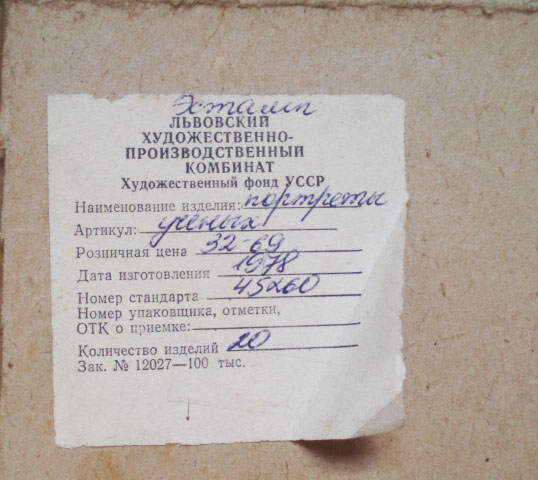 Эстамп
ЛЬВОВСКИЙ
ХУДОЖЕСТВЕННО-
ПРОИЗВОДСТВЕННЫЙ
КОМБИНАТ
Художественный фонд УССР
Наименование изделия: портреты
Артикул: ученых
Розничная цена 32-69
Дата изготовления 1978
Номер стандарта 45260
Номер упаковщика, отметки,
ОТК о приемке:
Количество изделий 20
Зак. № 12027—100 тыс.